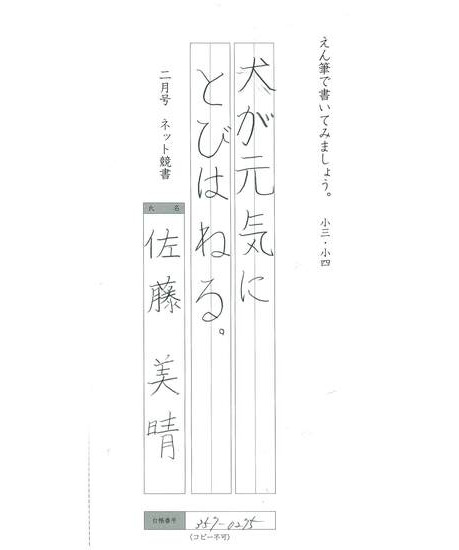 えん筆で書いてみましょう。 小三・小四
犬が元気に
とびはねる。
二月号 ネット競書
氏 名
佐藤 美晴
台帳番号
357-0275
(コピー不可)